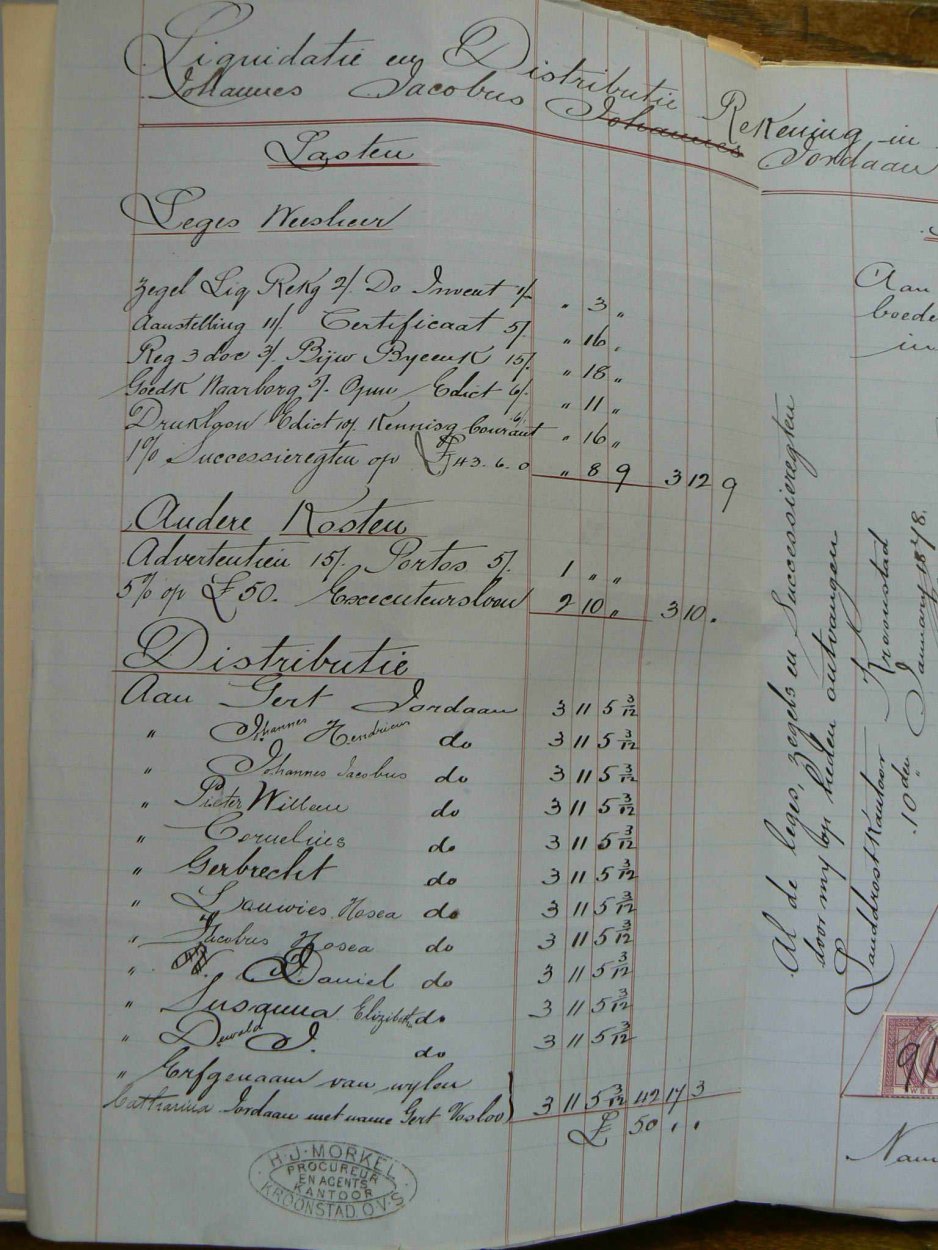 Liquidatie en Distributie Rekening in
Johannes Jacobus Johannes Jordaan
Lasten
Leges Weesheer
Zegel Liq Rekg 2/ Do Invent 1/- " 3 "
Aanstelling 11/. Certificaat 5/. " 16 "
Reg 3 doc 3/. Bijw Byeenk 15/. " 18 "
Goedk Waarborg 5/. Opm Edict 6/. " 11 "
Drukloon Edict 10/ Kennisg Courant 6/. " 16 "
1% Successieregten op £43.6.0 " 8 9 3 12 9
Andere Kosten
Advertentien 15/. Portos 5/. 1 " "
5% op £50. Executeursloon 2 10 " 3 10 .
Distributie
Aan Gert Jordaan 3 11 5 3/12
" Johannes Hendricus do 3 11 5 3/12
" Johannes Jacobus do 3 11 5 3/12
" Pieter Willem do 3 11 5 3/12
" Cornelius do 3 11 5 3/12
" Gerbrecht do 3 11 5 3/12
" Louwies Hosea do 3 11 5 3/12
" Jacobus Hosea do 3 11 5 3/12
" Daniel do 3 11 5 3/12
" Susanna Elizibeth do 3 11 5 3/12
" Dewald J. do 3 11 5 3/12
" Erfgenaam van wylen
Catharina Jordaan met name Gert Vosloo } 3 11 5 3/12 42 17 3
£ 50 . .
H.J. MORKEL
PROCUREUR
EN AGENTS
KANTOOR
KROONSTAD, O.V.S
Aan
boede
in
Al de leges, zegels en Successieregten
door my op heden ontvangen
Landdrostkantoor Kroonstad
10den January 1878.
91
Nam